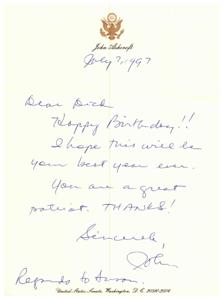 John Ashcroft
July 7, 1997
Dear Dick
Happy Birthday!!
I hope this will be
your best year ever.
You are a great
patriot. THANKS!
Sincerely,
John
Regards to Susan.
United States Senate, Washington, D.C. 20510-2504